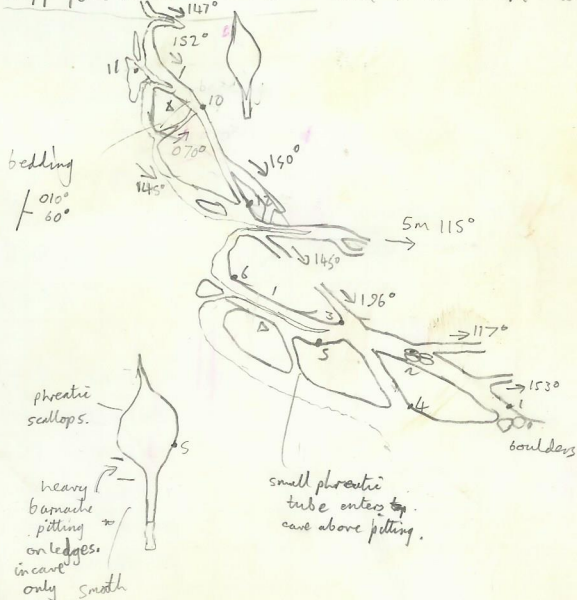 147°
152°
11
10
bedding
070°
010°
60°
145°
150°
12
5m 115°
145°
6
196°
3
1
5
117°
2
153°
4
1
boulders
phreatic
scallops.
5
heavy
barnacle
pitting
on ledges.
in cave
only
smooth
small phreatic
tube enters
cave above pitting.